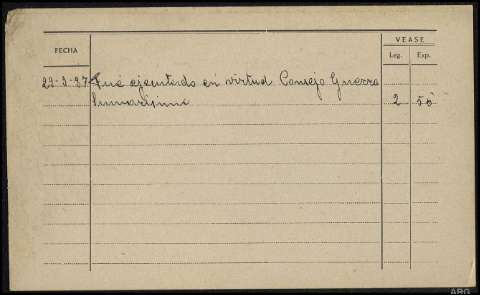 FECHA
VEASE
Leg. Exp.
Fué ejecutado en virtud Consejo Guerra
Sumarísimo 2 50